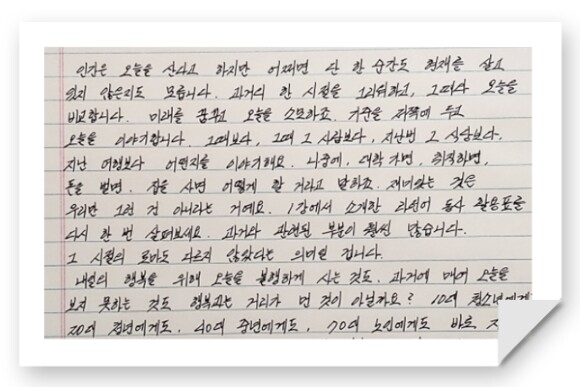 인간은 오늘을 산다고 하지만 어쩌면 단 한 순간도 현재를 살고
있지 않은지도 모릅니다. 과거의 한 시절을 그리워하고, 그때와 오늘을
비교합니다. 미래를 꿈꾸고 오늘을 소모하죠. 기준을 저쪽에 두고
오늘을 이야기합니다. 그때보다, 그때 그 사람보다, 지난번 그 식당보다.
지난 여행보다 어떤지를 이야기해요. 나중에, 대학 가면, 취직하면,
돈을 벌면, 집을 사면 어떻게 할 거라고 말하죠. 재미있는 것은
우리만 그런 건 아니라는 거예요. 1강에서 소개한 라틴어 동사 활용표를
다시 한 번 살펴보세요. 과거와 관련된 부분이 훨씬 많습니다.
그 시절의 로마도 다르지 않았다는 의미일 겁니다.
내일의 행복을 위해 오늘을 불행하게 사는 것도, 과거에 매여 오늘을
보지 못하는 것도 행복과는 거리가 먼 것이 아닐까요? 10대 청소년에게
20대 청년에게도, 40대 중년에게도, 70대 노인에게도 바로